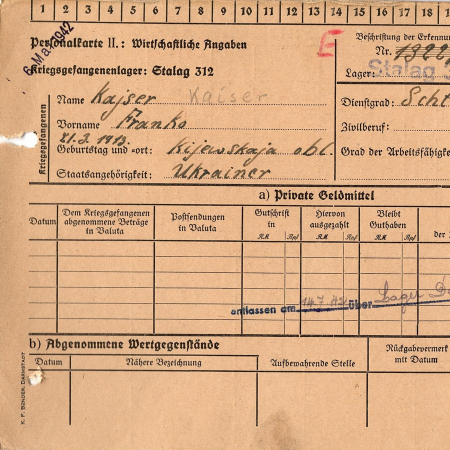 1 2 3 4 5 6 7 8 9 10 11 12 13 14 15 16 17 18
6. Mai 1942
Personalkarte II.: Wirtschaftliche Angaben
E
Beschriftung der Erkennun
Nr. 1322
Kriegsgefangenenlager: Stalag 312
Lager: Stalag 3
Kriegsgefangenen
Name Kajser Kaiser
Dienstgrad:
Vorname Franko
Zivilberuf:
21.3.1913.
Geburtstag und -ort: Kijewskaja obl.
Grad der Arbeitsfähigk
Staatsangehörigkeit: Ukrainer
a) Private Geldmittel
Datum
Dem Kriegsgefangenen abgenommene Beträge in Valuta
Postsendungen in Valuta
Gutschrift in
RM Rpf
Hiervon ausgezahlt
RM Rpf
Bleibt Guthaben
RM Rpf
der
entlassen am 14.7.42 über Lager
b) Abgenommene Wertgegenstände
Datum
Nähere Bezeichnung
Aufbewahrende Stelle
Rückgabevermerk mit Datum
K. F. BENDER, DARMSTADT